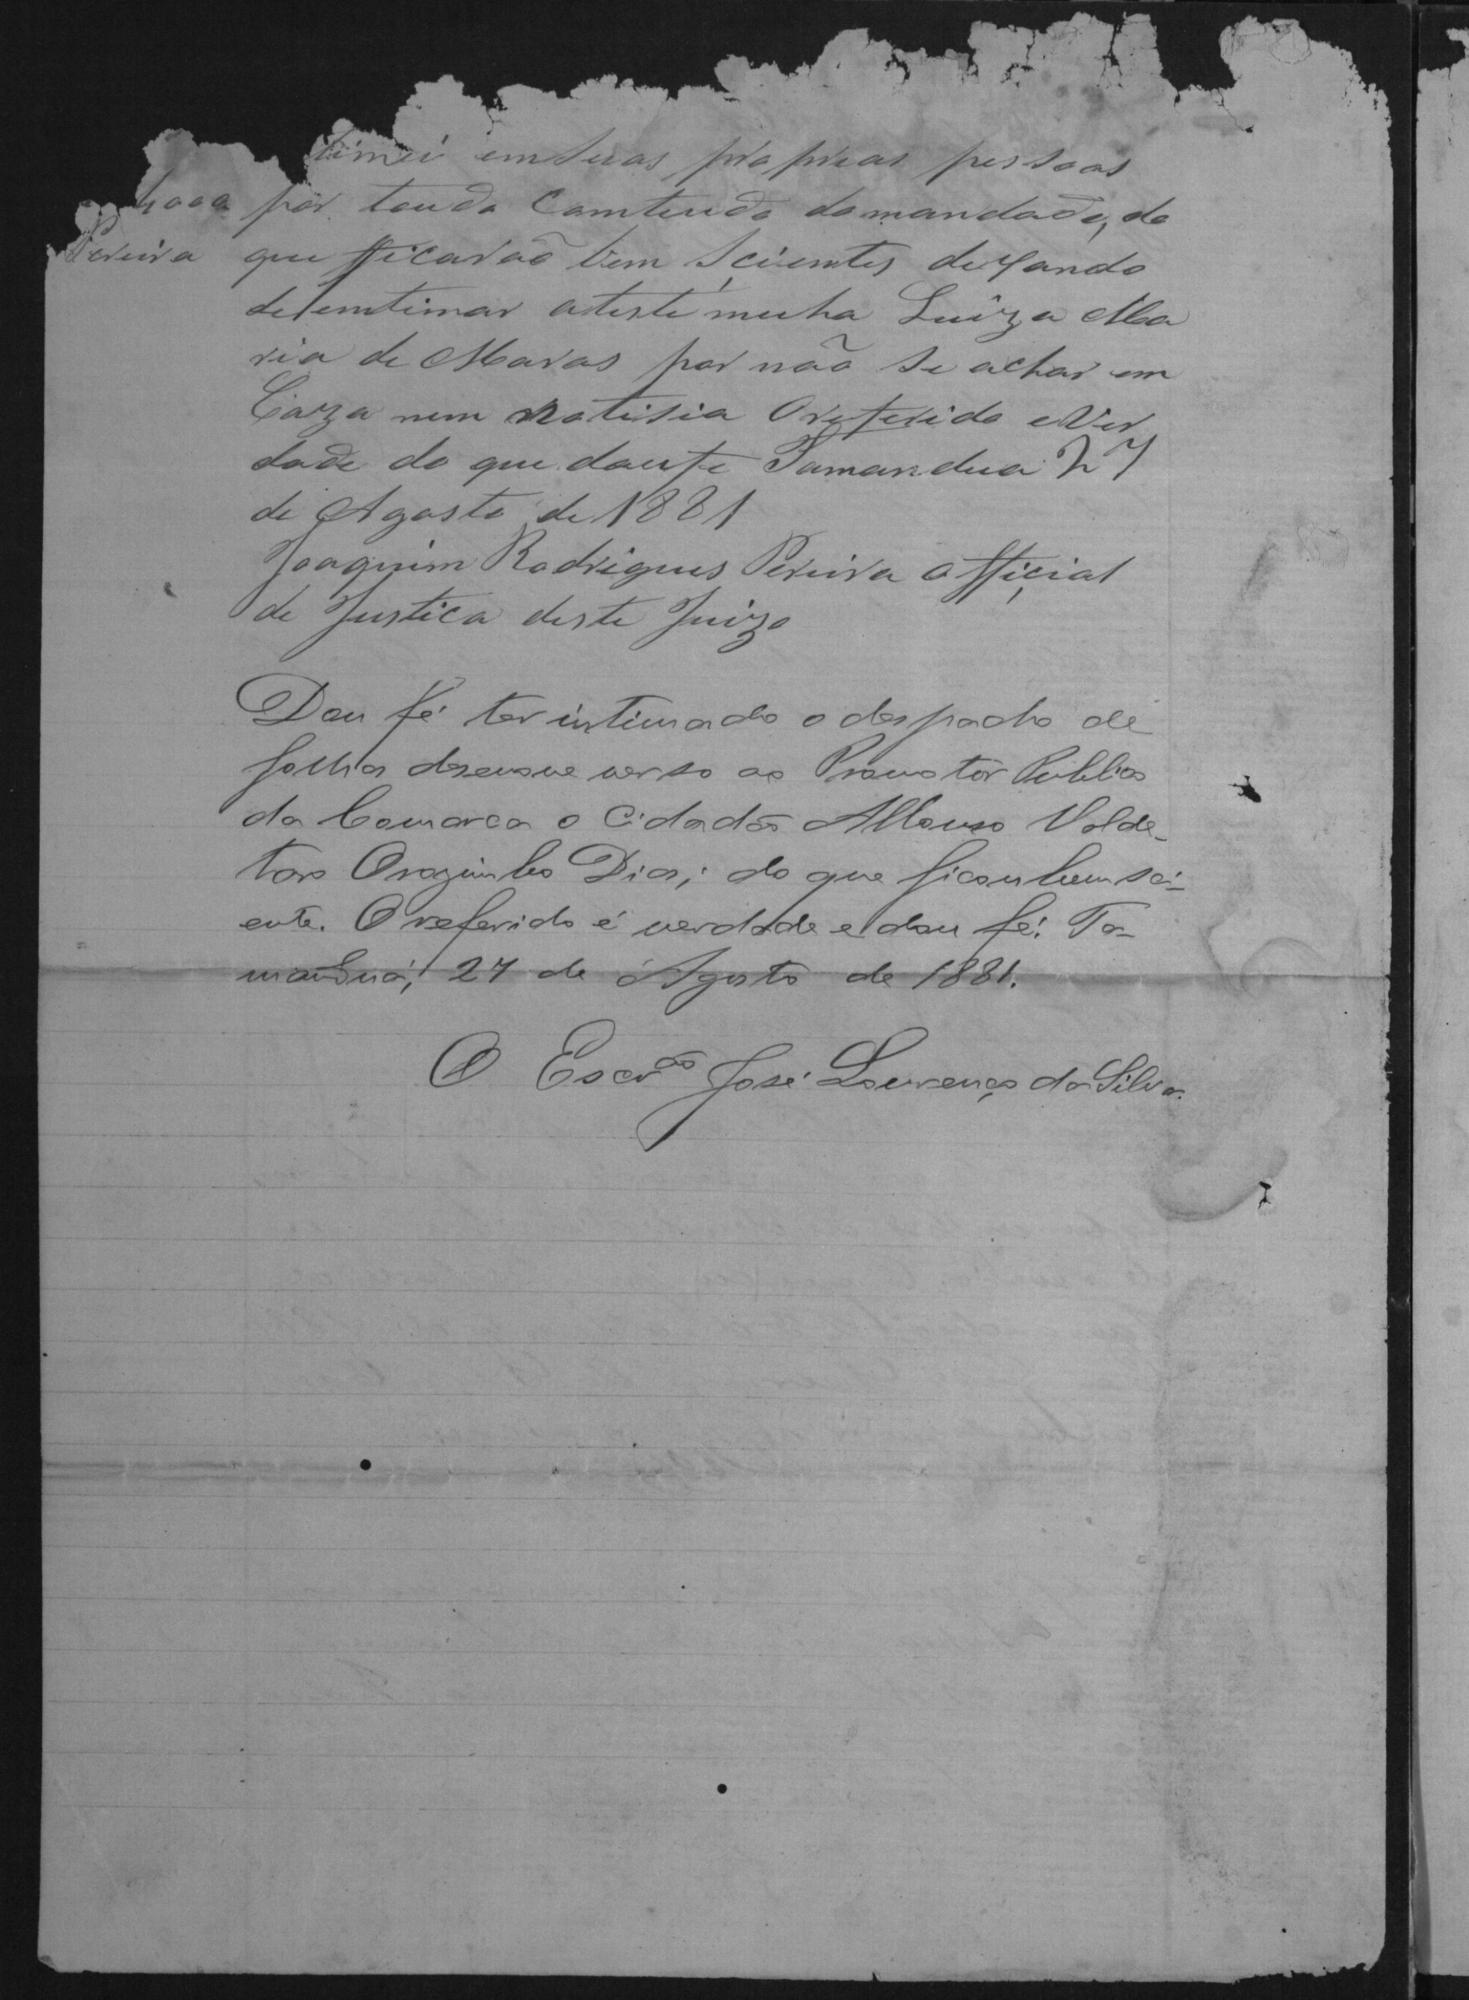 timei em suas proprias pessoas
4000 por toudo Comteudo domandado, do
Pereira que fficarão bem Scientes deixando
de emtimar atestemunha Luiza Ma
ria de Moras por não se achar em
Caza nem Notisia Oreferido eVer
dade do que doufe Tamandua 27
de Agosto de 1881
Joaquim Rodrigues Pereira official
de Justica deste Juizo
Dou fé ter intimado o despacho de
folha desenove verso ao Promotor Publico
da Comarca o Cidadão Affonso Valde-
taro Orozimbo Dias; do que ficou bem sci-
ente. O referido é verdade e dou fé. Ta-
manduá, 27 de Agosto de 1881.
O Escrão José Lourenço da Silva.